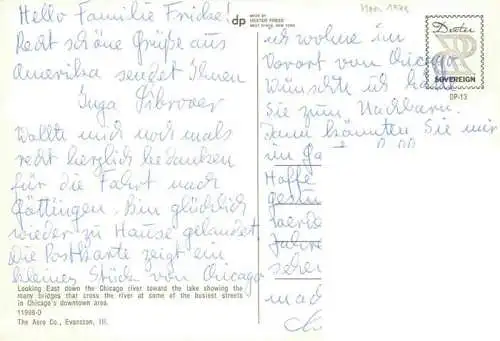 Hello Familie Fricke!
Recht schöne Grüße aus
Amerika sendet Ihnen
Inga
Wollte mich noch mals
recht herzlich bedanken
für die Fahrt nach
Göttingen. Bin glücklich
wieder zu Hause gelandet.
Die Postkarte zeigt ein
kleines Stück von Chicago
Looking East down the Chicago river toward the lake showing the
many bridges that cross the river at some of the busiest streets
in Chicago's downtown area.
11998-D
The Aero Co., Evanston, Ill.
dp
MADE BY
DEXTER PRESS
WEST NYACK, NEW YORK
Dexter
SOVEREIGN
DP-13
ich wohne im
Vorort von Chicago
wünschte ich hätte
Sie zum Nachbarn.
Dann könnten Sie mir
im Ga
Hoffe
werde
Jahre
sehen